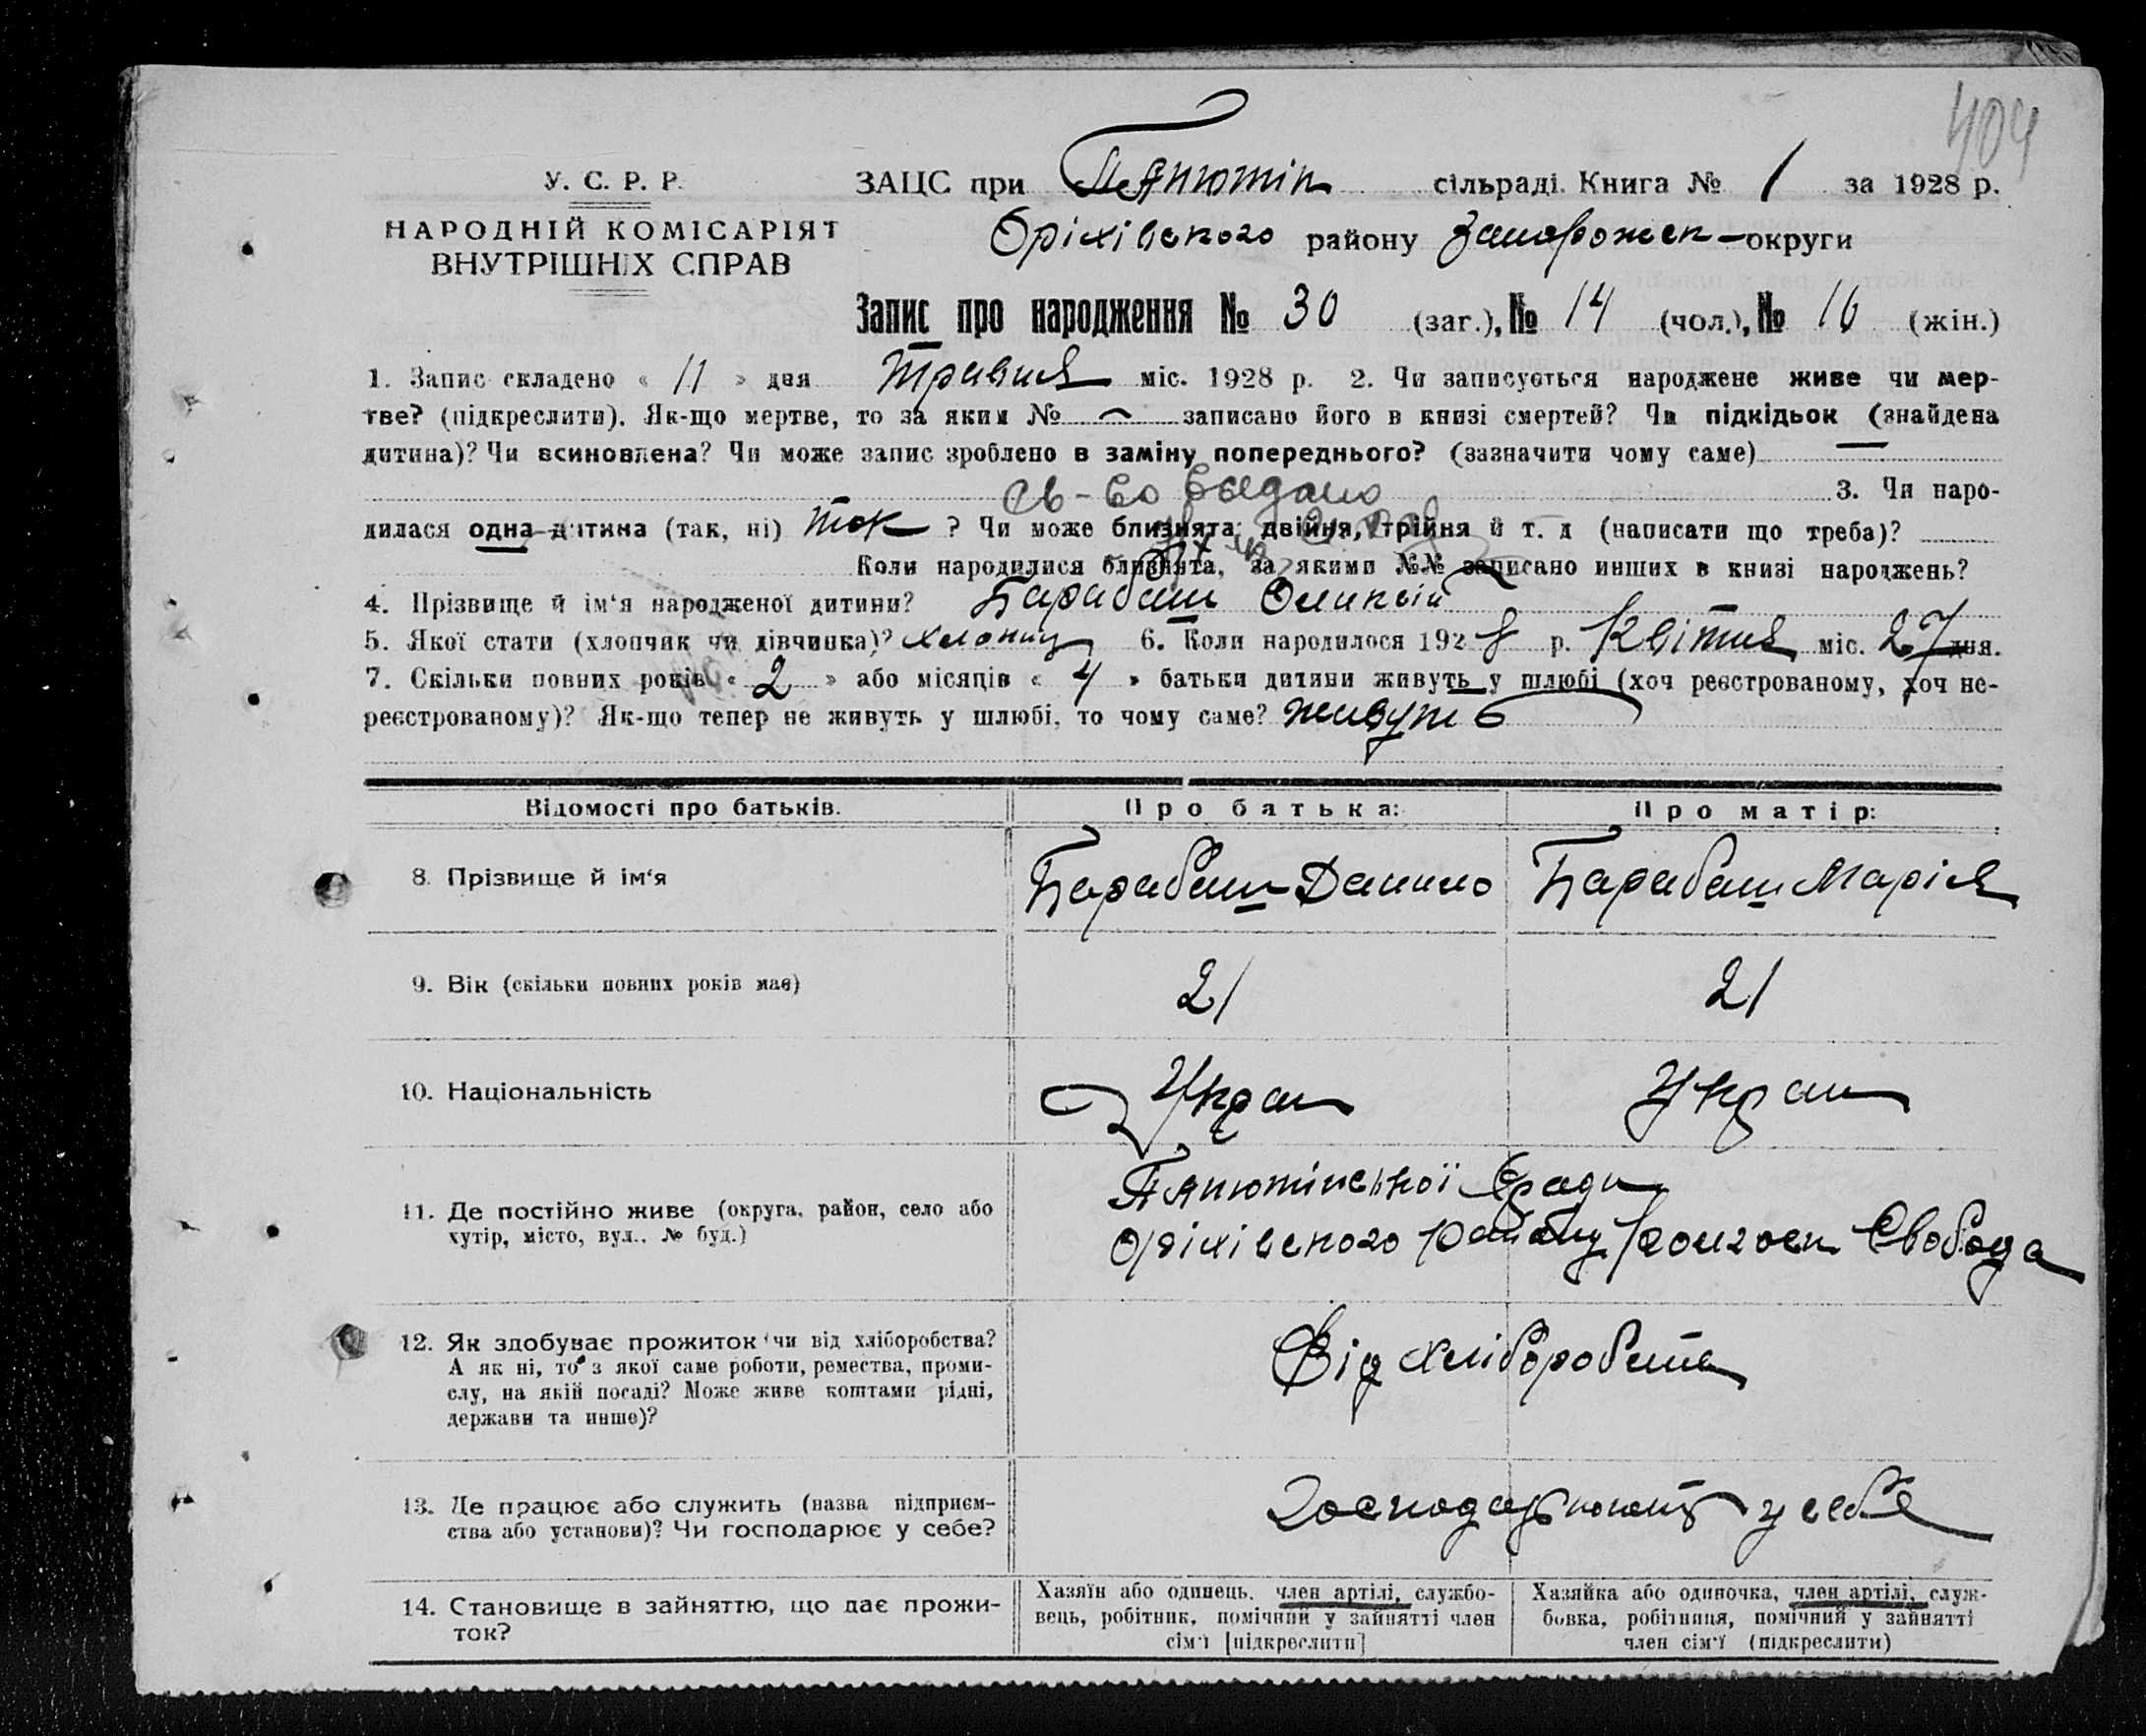 404
У. С. Р. Р.
НАРОДНІЙ КОМІСАРІЯТ
ВНУТРІШНІХ СПРАВ
ЗАЦС при сільраді. Книга № 1 за 1928 р.
Оріхівского району Запорожск – округи
Запис про народження № 30 (заг.), № 14 (чол.), № 16 (жін.)
1. Запис складено « 11 » дня Травня міс. 1928 р. 2. Чи записується народжене живе чи мер-
тве? (підкреслити). Як-що мертве, то за яким № — записано його в книзі смертей? Чи підкідьок (знайдена
дитина)? Чи всиновлена? Чи може запис зроблено в заміну попереднього? (зазначити чому саме) —
св-во выдано 3. Чи наро-
дилася одна дитина (так, ні) так ? Чи може близнята, двійня, трійня й т. д (написати що треба)?
Коли народилися близнята, за якими №№ записано инших в книзі народжень?
4. Прізвище й ім‘я народженої дитини? Барабаш Оликсій
5. Якої стати (хлопчик чи дівчинка)? хлопиц 6. Коли народилося 1928 р. Квітня міс. 27 дня.
7. Скільки повних років « 2 » або місяців « 4 » батьки дитини живуть у шлюбі (хоч реєстрованому, хоч не-
реєстрованому)? Як-що тепер не живуть у шлюбі, то чому саме? живуть
Відомості про батьків. Про батька: Про матір:
8. Прізвище й ім‘я Барабаш Данило Барабаш Марія
9. Вік (скільки повних років має) 21 21
10. Національність Укран Укран
11. Де постійно живе (округа, район, село або
хутір, місто, вул., № буд.)
С ради
Оріхівского району Колгосп Свобода
12. Як здобуває прожиток (чи від хліборобства?
А як ні, то з якої саме роботи, ремества, проми-
слу, на якій посаді? Може живе коштами рідні,
держави та инше)?
Від хліборобства
13. Де працює або служить (назва підприєм-
ства або установи)? Чи господарює у себе?
Господарюють у себе
14. Становище в зайняттю, що дає прожи-
ток?
Хазяїн або одинець, член артілі, службо-
вець, робітник, помічний у зайнятті член
сім‘ї [підкреслити]
Хазяйка або одиночка, член артілі, служ-
бовка, робітниця, помічний у зайнятті
член сім‘ї (підкреслити)